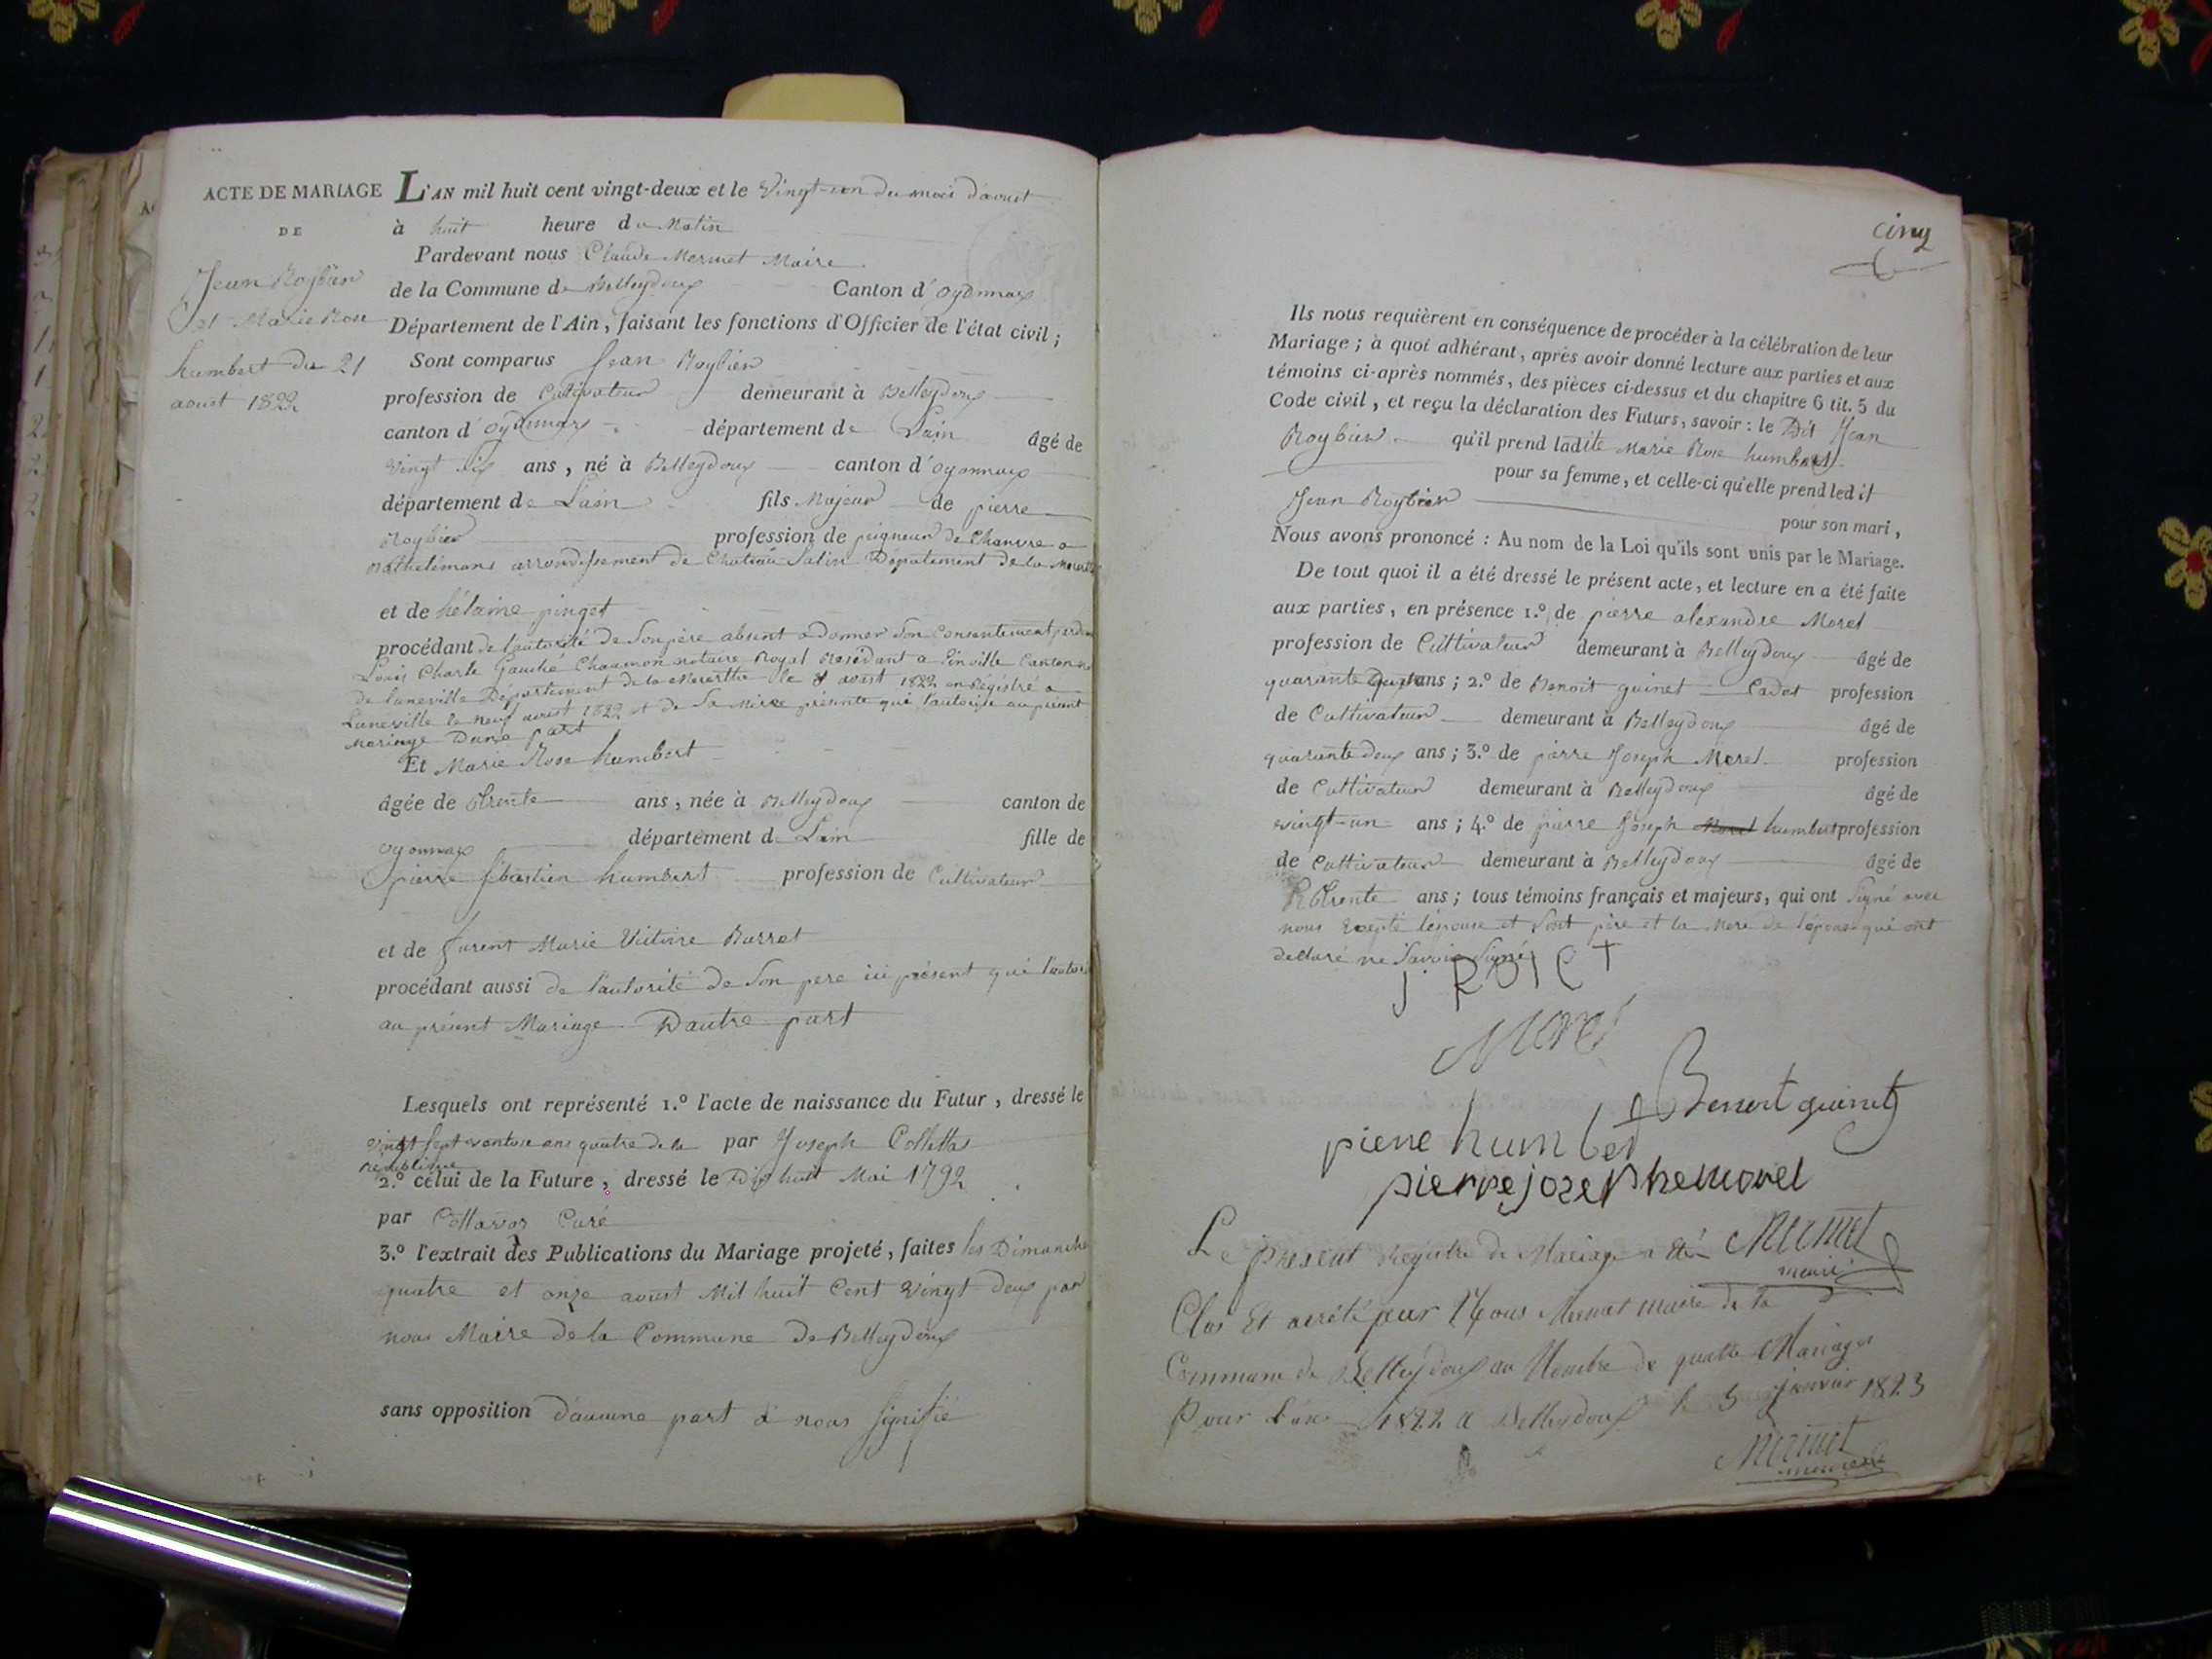 ACTE DE MARIAGE
DE
Jean Roybier
et Marie Rose
humbert du 21
aoust 1822
L'AN mil huit cent vingt-deux et le Vingt-un du mois d'aoust
à huit heure du Matin
Pardevant nous Claude Mermet Maire
de la Commune de Belleydoux Canton d'oyonnax
Département de l'Ain, faisant les fonctions d'Officier de l'état civil;
Sont comparus Jean Roybier
profession de Cultivateur demeurant à Belleydoux
canton d'oyonnax département de Lain âgé de
vingt six ans, né à Belleydoux canton d'oyonnax
département de Lain fils Majeur de pierre
Roybier profession de peigneur de Chanvre a
arrondissement de Chateau Salin Département de la Meurthe
et de hélaine pinget
procédant de l'autorité de Son père absent a donner Son Consentement pardevant
Louis Charle Gauché Chaumon notaire Royal Residant a Einville Canton
de Luneville Département de la Meurthe le 8 aoust 1822 enRégistré a
Luneville le neuf aoust 1822 et de Sa Mere présente qui l'autorise au présent
Mariage D'une part
Et Marie Rose humbert
âgée de trente ans, née à Belleydoux canton de
oyonnax département de Lain fille de
pierre Sébastien humbert profession de Cultivateur
et de Marie Victoire Burret
procédant aussi de l'autorité de Son pere ici présent qui l'autorise
au présent Mariage D'autre part
Lesquels ont représenté 1.º l'acte de naissance du Futur, dressé le
vingt Sept ventose ans quatre de la par Joseph Collettaz
Republique
2.º celui de la Future, dressé le Dix huit Mai 1792
par Curé
3.º l'extrait des Publications du Mariage projeté, faites les Dimanche
quatre et onze aoust Mil huit Cent Vingt deux par
nous Maire de la Commune de Belleydoux
sans opposition d'aucune part à nous Signifié
cinq
Ils nous requièrent en conséquence de procéder à la célébration de leur
Mariage; à quoi adhérant, après avoir donné lecture aux parties et aux
témoins ci-après nommés, des pièces ci-dessus et du chapitre 6 tit. 5 du
Code civil, et reçu la déclaration des Futurs, savoir: le Dit Jean
Roybier qu'il prend ladite Marie Rose humbert
pour sa femme, et celle-ci qu'elle prend ledit
Jean Roybier pour son mari,
Nous avons prononcé: Au nom de la Loi qu'ils sont unis par le Mariage.
De tout quoi il a été dressé le présent acte, et lecture en a été faite
aux parties, en présence 1.º de pierre aléxandre Morel
profession de Cultivateur demeurant à Belleydoux âgé de
quarante ans; 2.º de Benoit guinet Cadet profession
de Cultivateur demeurant à Belleydoux âgé de
quarante deux ans; 3.º de pierre Joseph Morel profession
de Cultivateur demeurant à Belleydoux âgé de
vingt-un ans; 4.º de pierre Joseph Morel humbert profession
de Cultivateur demeurant à Belleydoux âgé de
trente ans; tous témoins français et majeurs, qui ont Signé avec
nous Excepté l'épouse et Sont père et la Mere de l'époux qui ont
déclaré ne Savoir Signé
Morel
Benoit guinet
pierre humber
pierre joseph morel
Mermet
maire
Le present Registre de Mariage a été
Clos Et arrêté par Nous Mermet maire de la
Commune de Belleydoux au Nombre de quatre Mariages
Pour l'an 1822 a Belleydoux le 3 janvier 1823
Mermet
maire